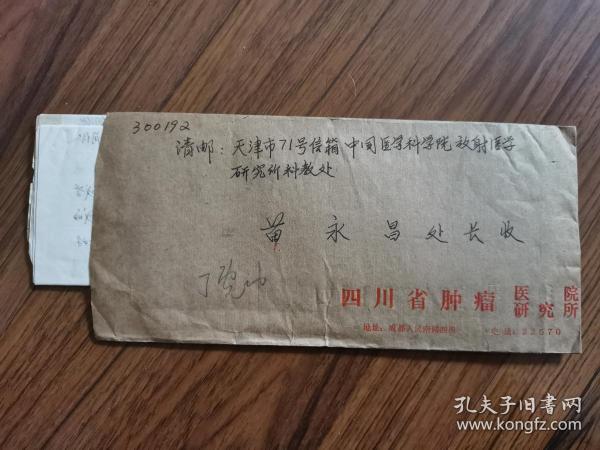 300192
请邮：天津市71号信箱 中国医学科学院放射医学
研究所科教处
苗永昌处长收
四川省肿瘤医院
研究所
地址：成都人民南路四段
电话：22570
孔夫子旧书网
www.kongfz.com